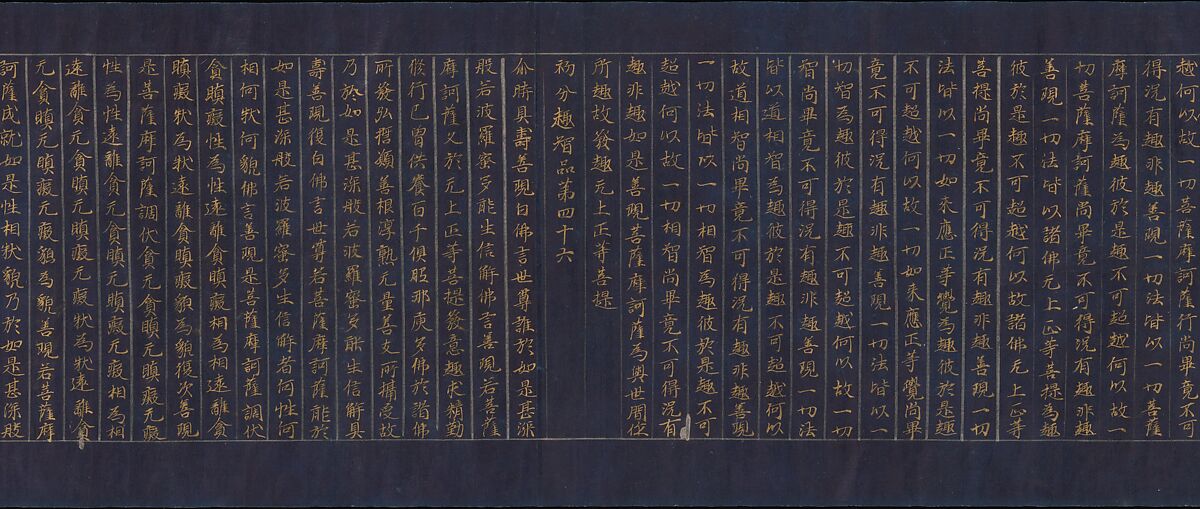 越何以故一切菩薩摩訶薩行尚畢竟不可
得況有趣非趣善現一切法皆以一切菩薩
摩訶薩為趣彼於是趣不可超越何以故一
切菩薩摩訶薩尚畢竟不可得況有趣非趣
善現一切法皆以諸佛无上正等菩提為趣
彼於是趣不可超越何以故諸佛无上正等
菩提尚畢竟不可得況有趣非趣善現一切
法皆以一切如來應正等覺為趣彼於是趣
不可超越何以故一切如來應正等覺尚畢
竟不可得況有趣非趣善現一切法皆以一
切智為趣彼於是趣不可超越何以故一切
智尚畢竟不可得況有趣非趣善現一切法
皆以道相智為趣彼於是趣不可超越何以
故道相智尚畢竟不可得況有趣非趣善現
一切法皆以一切相智為趣彼於是趣不可
超越何以故一切相智尚畢竟不可得況有
趣非趣如是善現菩薩摩訶薩為與世間作
所趣故發趣无上正等菩提
初分趣智品第四十六
尒時具壽善現白佛言世尊誰於如是甚深
般若波羅蜜多能生信解佛言善現若菩薩
摩訶薩久於无上正等菩提發意趣求精勤
脩行已曾供養百千俱胝那庾多佛於諸佛
所發弘誓願善根淳熟无量善友所攝受故
乃於如是甚深般若波羅蜜多能生信解具
壽善現復白佛言世尊若菩薩摩訶薩能於
如是甚深般若波羅蜜多生信解者何性何
相何狀何貌佛言善現是菩薩摩訶薩調伏
貪瞋癡性為性遠離貪瞋癡相為相遠離貪
瞋癡狀為狀遠離貪瞋癡貌為貌復次善現
是菩薩摩訶薩調伏貪无貪瞋无瞋癡无癡
性為性遠離貪无貪瞋无瞋癡无癡相為相
遠離貪无貪瞋无瞋癡无癡狀為狀遠離貪
无貪瞋无瞋癡无癡貌為貌善現若菩薩摩
訶薩成就如是性相狀貌乃於如是甚深般